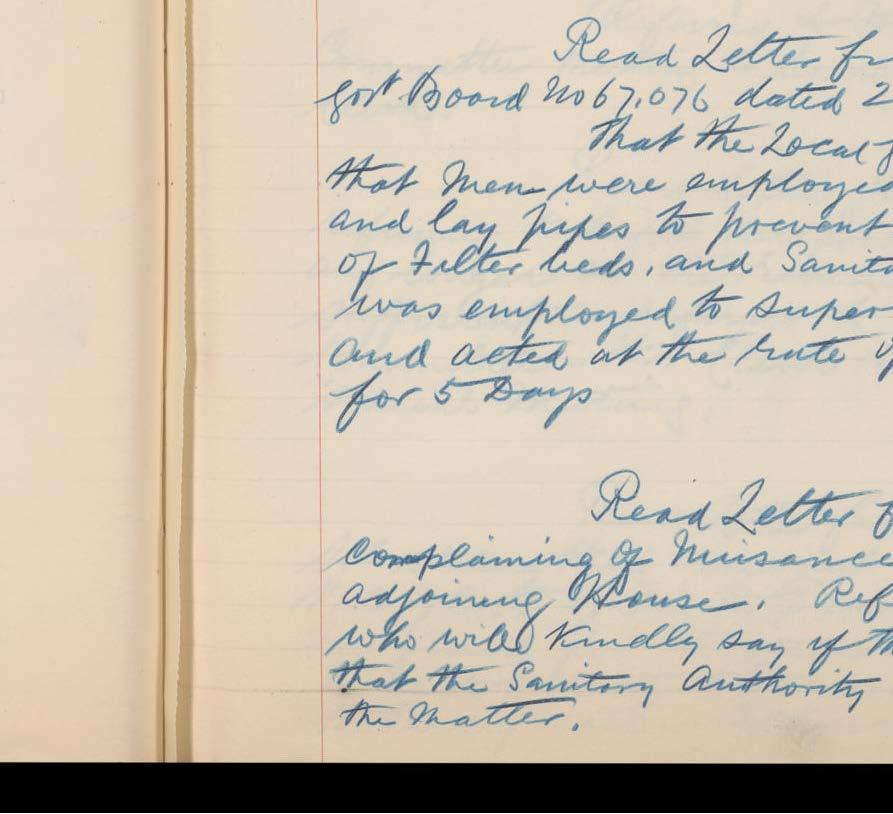 Read Letter fr
Govt Board No 67,076 dated 2
that the Local
that Men were employed
and lay pipes to prevent
of Filter beds, and Sanita
was employed to super
and acted at the rate of
for 5 Days
Read Letter f
complaining of Nuisance
adjoining House. Ref
who will kindly say if th
that the Sanitary Authority
the Matter.